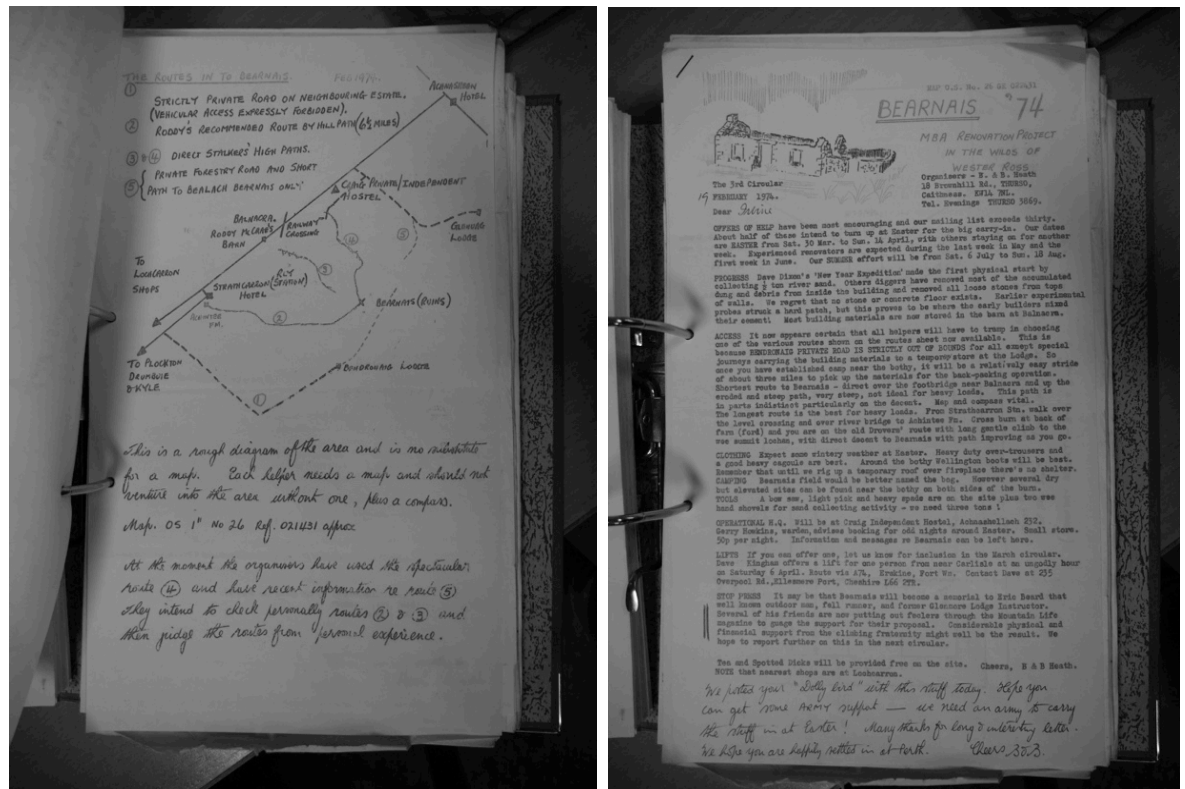 THE ROUTES IN TO BEARNAIS. FEB 1974.
① STRICTLY PRIVATE ROAD ON NEIGHBOURING ESTATE.
(VEHICULAR ACCESS EXPRESSLY FORBIDDEN).
② RODDY'S RECOMMENDED ROUTE BY HILL PATH (6½ MILES)
③ & ④ DIRECT STALKERS' HIGH PATHS.
⑤ PRIVATE FORESTRY ROAD AND SHORT
PATH TO BEALACH BEARNAIS ONLY.
ACHNASHEEN
HOTEL
CRAIG PRIVATE/INDEPENDENT
HOSTEL
BALNACRA.
RODDY McCRAE'S
BARN
RAILWAY
CROSSING
④
⑤
GLENUAIG
LODGE
TO
LOCHCARRON
SHOPS
③
STRATHCARRON (RLY STATION)
HOTEL
ACHINTEE
FM.
②
BEARNAIS (RUINS)
TO PLOCKTON
DRUMBUIE
& KYLE
BENDRONAIG LODGE
①
This is a rough diagram of the area and is no substitute
for a map. Each helper needs a map and should not
venture into the area without one, plus a compass.
Map. OS 1" No 26 Ref. 021431 approx
At the moment the organisers have used the spectacular
route ④ and have recent information re route ⑤
They intend to check personally routes ② & ③ and
then judge the routes from personal experience.
BEARNAIS '74
MBA RENOVATION PROJECT
IN THE WILDS OF
WESTER ROSS
Organisers - B. & B. Heath
18 Brownhill Rd., THURSO,
Caithness. KW14 7NL.
Tel. Evenings THURSO 3869.
The 3rd Circular
19 FEBRUARY 1974.
Dear Irvine
OFFERS OF HELP have been most encouraging and our mailing list exceeds thirty.
About half of these intend to turn up at Easter for the big carry-in. Our dates
are EASTER from Sat. 30 Mar. to Sun. 14 April, with others staying on for another
week. Experienced renovators are expected during the last week in May and the
first week in June. Our SUMMER effort will be from Sat. 6 July to Sun. 18 Aug.
PROGRESS Dave Dixon's 'New Year Expedition' made the first physical start by
collecting ½ ton river sand. Others diggers have removed most of the accumulated
dung and debris from inside the building and removed all loose stones from tops
of walls. We regret that no stone or concrete floor exists. Earlier experimental
probes struck a hard patch, but this proves to be where the early builders mixed
their cement! Most building materials are now stored in the barn at Balnacra.
ACCESS It now appears certain that all helpers will have to tramp in choosing
one of the various routes shown on the routes sheet now available. This is
because BENDRONAIG PRIVATE ROAD IS STRICTLY OUT OF BOUNDS for all except special
journeys carrying the building materials to a temporary store at the Lodge. So
once you have established camp near the bothy, it will be a relatively easy stride
of about three miles to pick up the materials for the back-packing operation.
Shortest route to Bearnais - direct over the footbridge near Balnacra and up the
eroded and steep path, very steep, not ideal for heavy loads. This path is
in parts indistinct particularly on the decent. Map and compass vital.
The longest route is the best for heavy loads. From Strathcarron Stn. walk over
the level crossing and over river bridge to Achintee Fm. Cross burn at back of
farm (ford) and you are on the old Drovers' route with long gentle climb to the
wee summit lochan, with direct descent to Bearnais with path improving as you go.
CLOTHING Expect some wintery weather at Easter. Heavy duty over-trousers and
a good heavy cagoule are best. Around the bothy Wellington boots will be best.
Remember that until we rig up a temporary roof over fireplace there's no shelter.
CAMPING Bearnais field would be better named the bog. However several dry
but elevated sites can be found near the bothy on both sides of the burn.
TOOLS A bow saw, light pick and heavy spade are on the site plus two wee
hand shovels for sand collecting activity - we need three tons !
OPERATIONAL H.Q. Will be at Craig Independent Hostel, Achnashellach 232.
Gerry Howkins, warden, advises booking for odd nights around Easter. Small store.
50p per night. Information and messages re Bearnais can be left here.
LIFTS If you can offer one, let us know for inclusion in the March circular.
Dave Bingham offers a lift for one person from near Carlisle at an ungodly hour
on Saturday 6 April. Route via A74, Erskine, Fort Wm. Contact Dave at 235
Overpool Rd., Ellesmere Port, Cheshire L66 2TR.
STOP PRESS It may be that Bearnais will become a memorial to Eric Beard that
well known outdoor man, fell runner, and former Glenmore Lodge Instructor.
Several of his friends are now putting out feelers through the Mountain Life
magazine to guage the support for their proposal. Considerable physical and
financial support from the climbing fraternity might well be the result. We
hope to report further on this in the next circular.
Tea and Spotted Dicks will be provided free on the site. Cheers, B & B Heath.
NOTE that nearest shops are at Lochcarron.
We posted your "Dolly bird" with this stuff today. Hope you
can get some ARMY support — we need an army to carry
the stuff in at Easter! Many thanks for long & interesting letter.
We hope you are happily settled in at Perth. Cheers B&B.